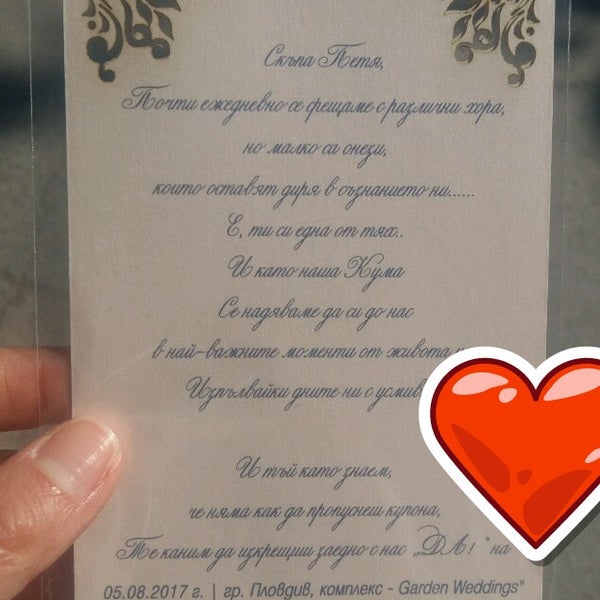 Скъпа Петя,
Почти ежедневно се срещаме с различни хора,
но малко са онези,
които оставят диря в съзнанието ни......
Е, ти си една от тях..
И като наша Кума
Се надяваме да си до нас
в най-важните моменти от живота
Изпълвайки дните ни с
И тъй като знаем,
че няма как да пропуснеш купона,
Те каним да изкрещиш заедно с нас „ДА! " на
05.08.2017 г. | гр. Пловдив, комплекс - Garden Weddings"